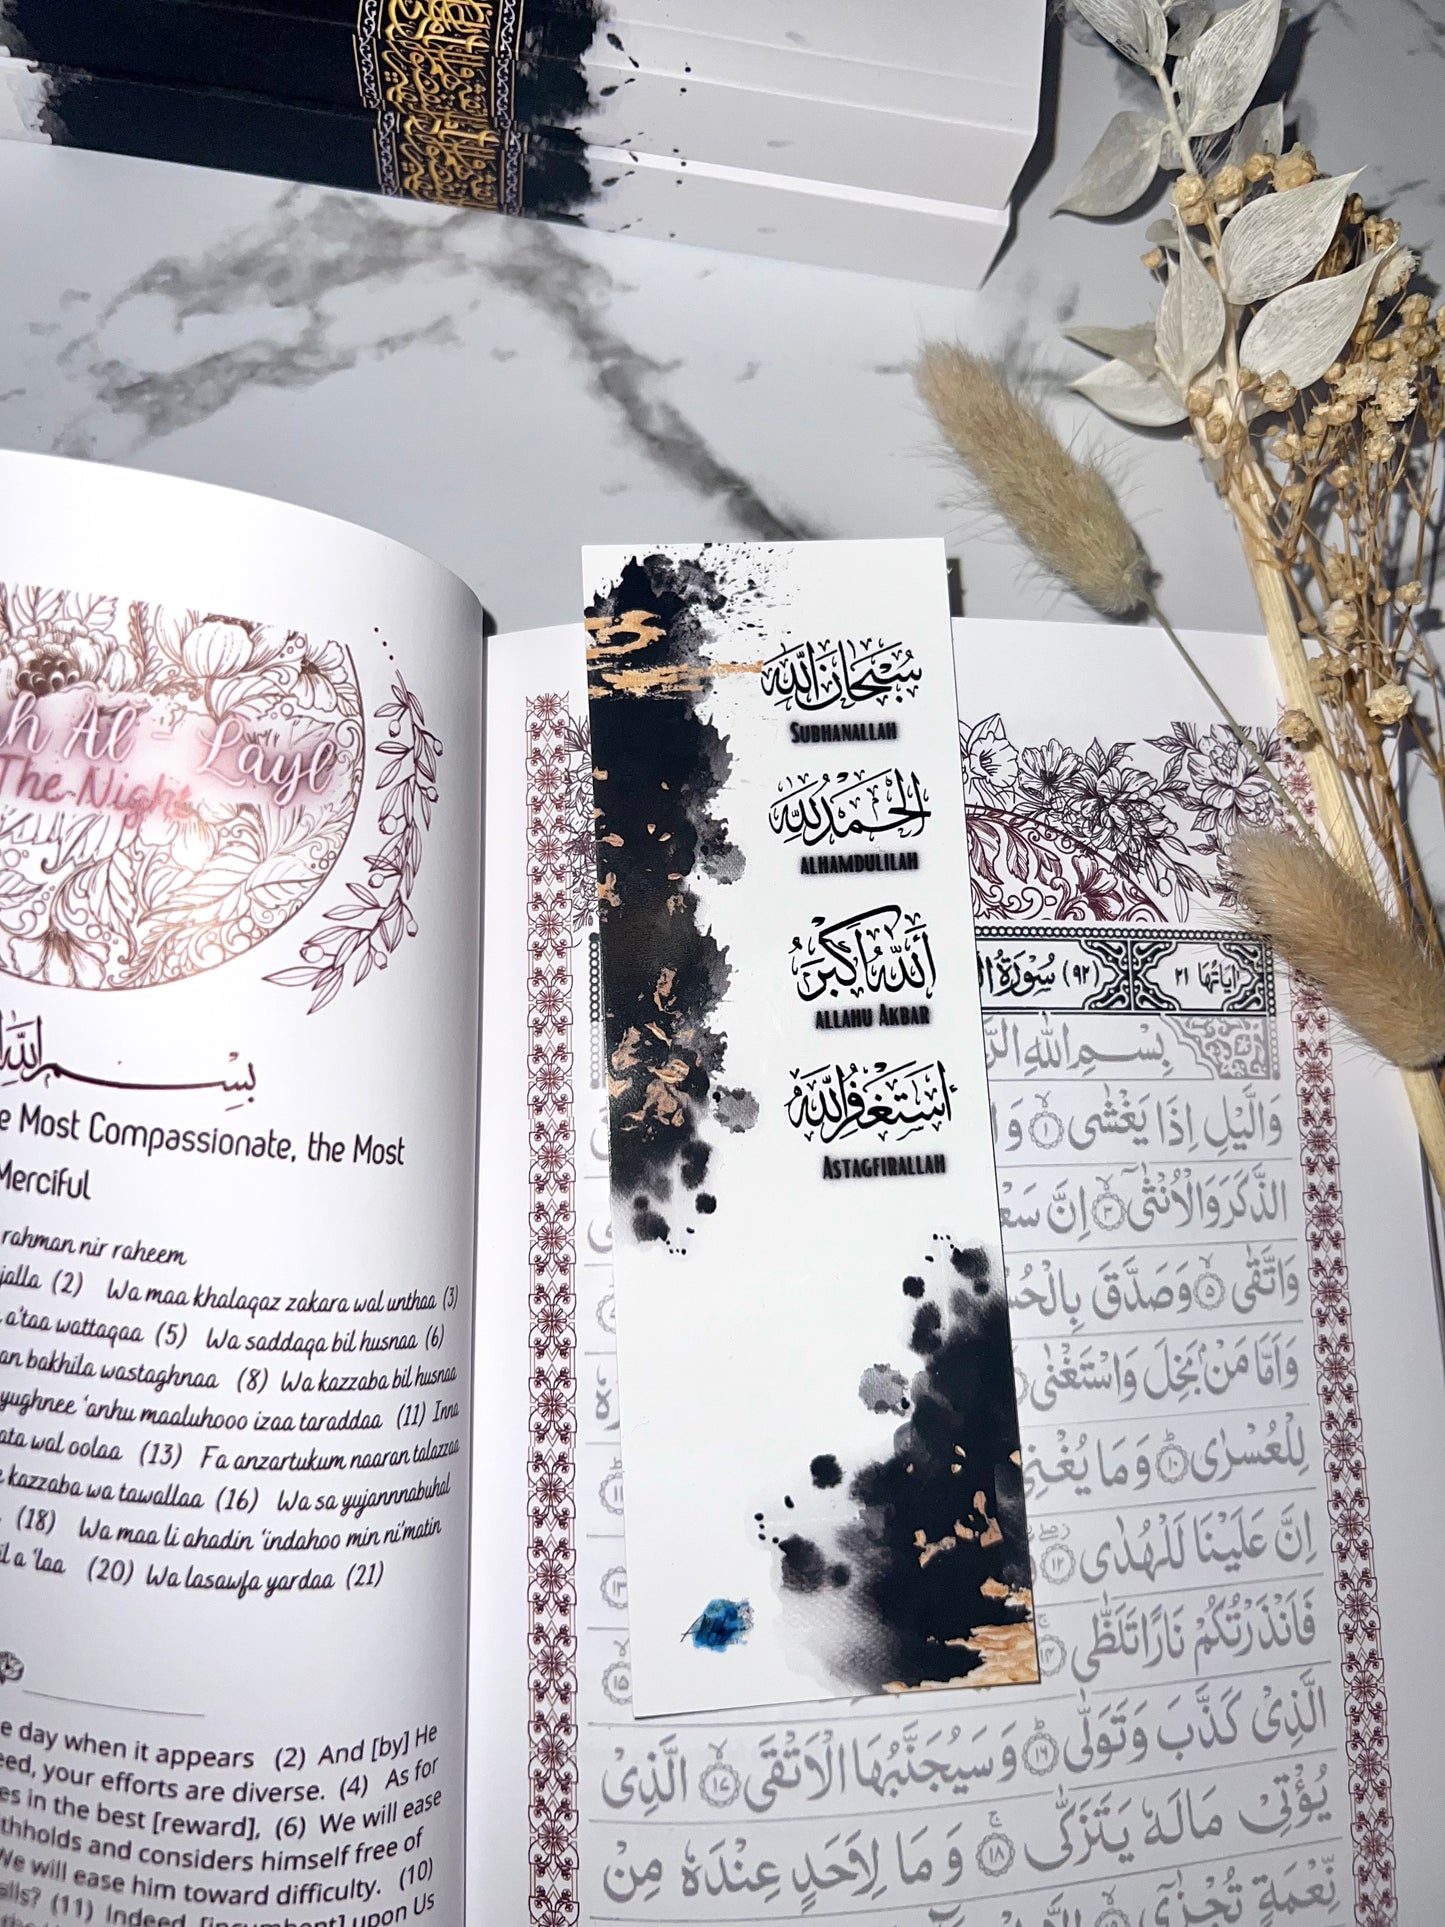 h Al - Layl
The Night
بسم الله
e Most Compassionate, the Most
Merciful
rahman nir raheem
jalla (2) Wa maa khalaqaz zakara wal unthaa (3)
a'taa wattaqaa (5) Wa saddaqa bil husnaa (6)
an bakhila wastaghnaa (8) Wa kazzaba bil husnaa
yughnee 'anhu maaluhooo izaa taraddaa (11) Inna
ata wal oolaa (13) Fa anzartukum naaran talazzaa
e kazzaba wa tawallaa (16) Wa sa yujannnabuhal
(18) Wa maa li ahadin 'indahoo min ni'matin
il a 'laa (20) Wa lasawfa yardaa (21)
e day when it appears (2) And [by] He
eed, your efforts are diverse. (4) As for
es in the best [reward], (6) We will ease
thholds and considers himself free of
We will ease him toward difficulty. (10)
alls? (11) Indeed, [incumbent] upon Us
سُبْحَانَ اللّٰه
SUBHANALLAH
الْحَمْدُ لِلّٰه
ALHAMDULILAH
اَللّٰهُ اَكْبَرُ
ALLAHU AKBAR
أَسْتَغْفِرُ اللّٰهَ
ASTAGFIRALLAH
اٰيَاتُهَا ٢١ (٩٢) سُوْرَةُ
بِسْمِ اللّٰهِ
وَالَّيْلِ اِذَا يَغْشٰى ١
الذَّكَرَ وَالْاُنْثٰى ٣ اِنَّ
وَاتَّقٰى ٥ وَصَدَّقَ
وَاَمَّا مَنْۢ بَخِلَ وَاسْتَغْنٰى
لِلْعُسْرٰى ١٠ وَمَا يُغْنِىْ
اِنَّ عَلَيْنَا لَلْهُدٰى ١٢
فَاَنْذَرْتُكُمْ نَارًا تَلَظّٰى ١٤
الَّذِىْ كَذَّبَ وَتَوَلّٰى ١٦ وَسَيُجَنَّبُهَا الْاَتْقَى ١٧ الَّذِىْ
يُؤْتِىْ مَالَهٗ يَتَزَكّٰى ١٨ وَمَا لِاَحَدٍ عِنْدَهٗ مِنْ
نِّعْمَةٍ تُجْزٰٓى ١٩